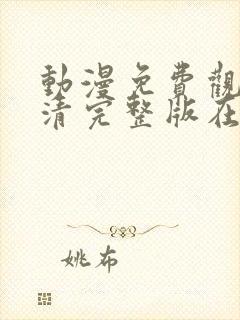 動漫免費觀
清完整版在
姚布